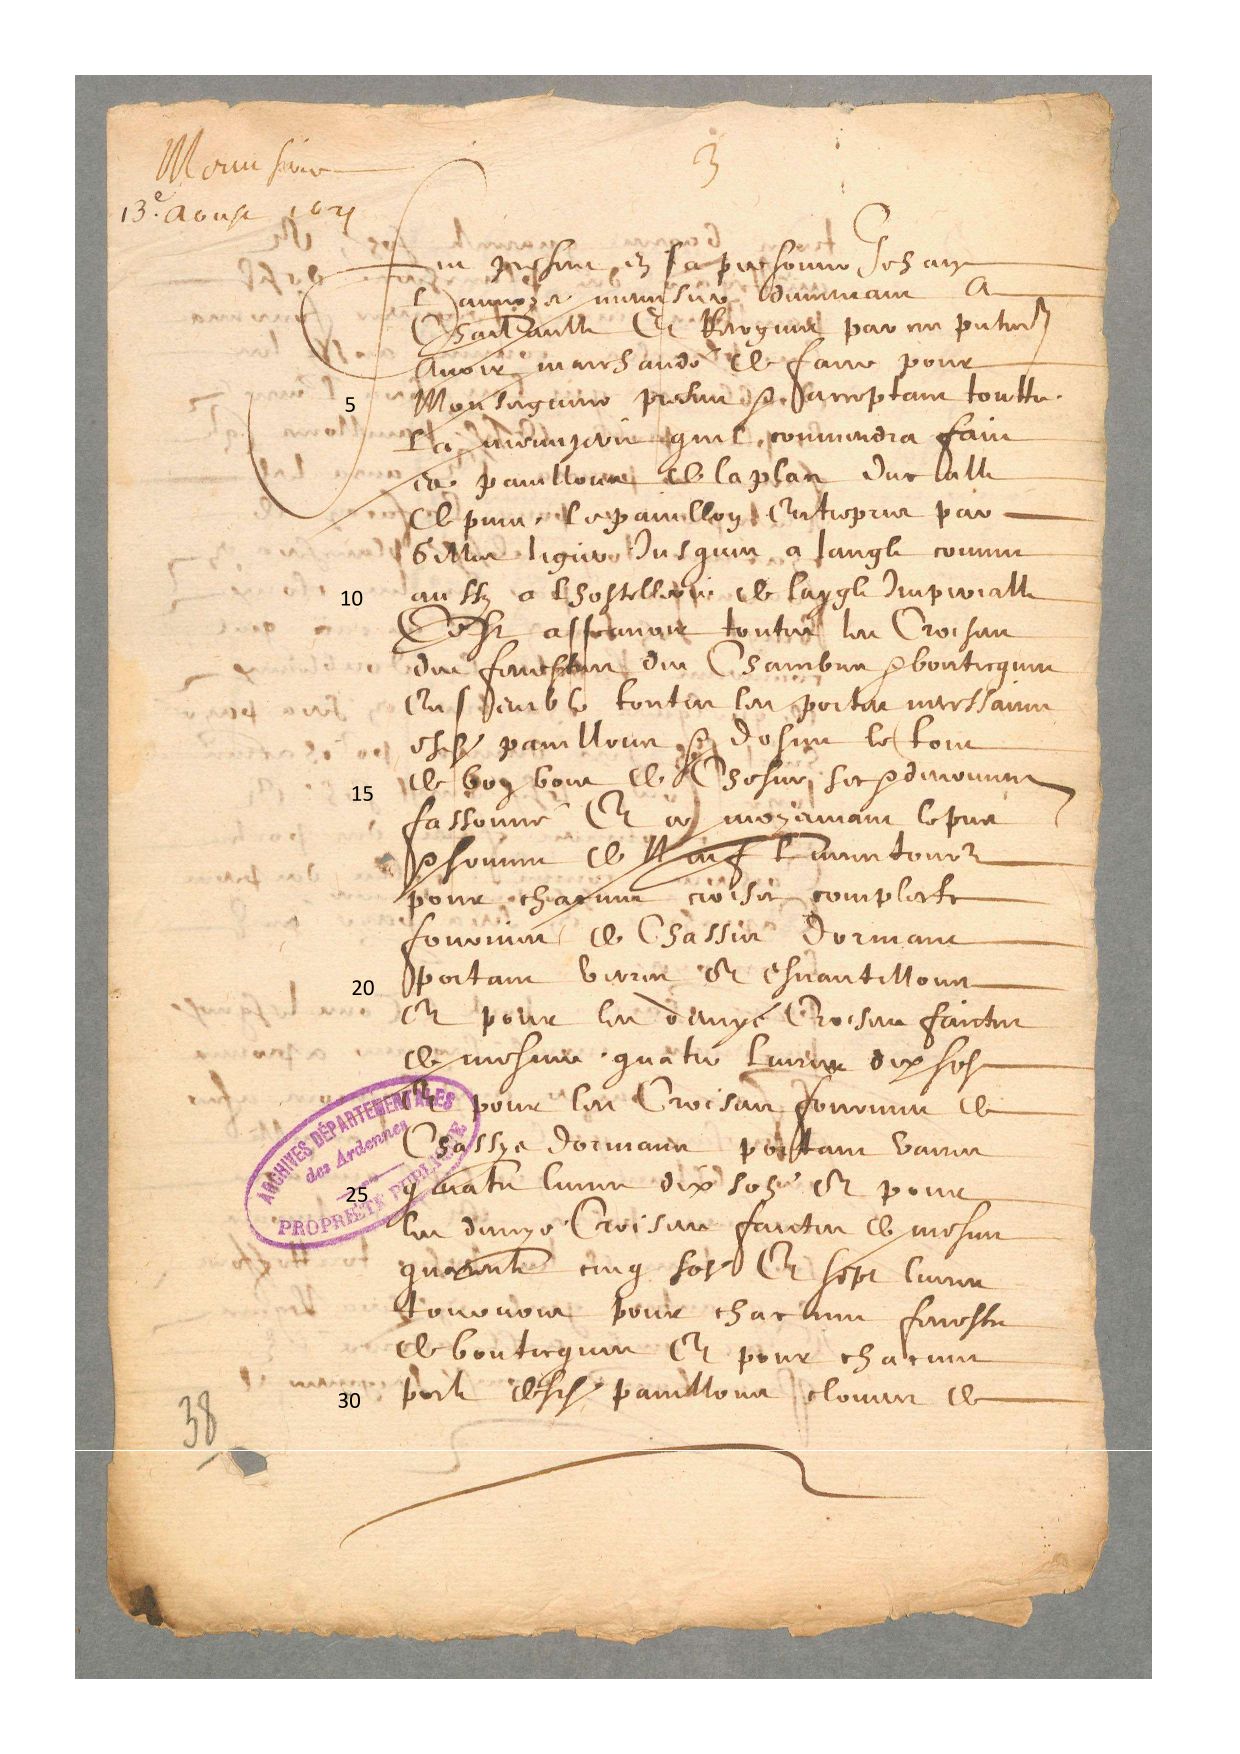 Menuserie
13e. Aoust 162
3
Fut present en sa personne Jehan
menusier demeurant a
Charleville Et Recognut par ces presentes
Avoir marchandé de faire pour
5 Monseigneur present et acceptant toutte
La menuzerie quil conviendra faire
es pavillons de la place ducalle
depuis le pavillon entrepris par
Gilles ligier Jusques a langle comme
10 aussy a Lhostellerie de laygle Imperialle
Cest assavoir touttes les Croisees
des fenestres des Chambres et bouticques
Ensemble touttes les portes necessaires
esdits pavillons et dosme le tout
15 de bon bois de Chesne sec et deuement
fassonné Et ce moyennant le prix
et somme de Neuf Livres tournois
pour chacune croisee complette
fournie de Chassis dormant
20 portant verre Et eschantillons
Et pour les demye Croisees faictes
de mesme quatre livres dix solz
Et pour les Croisees fournies de
Chassye dormans portant verre
25 quatre livres dix solz Et pour
les demye Croisees faictes de mesme
quarante cinq solz Et sept livres
tournois pour chacune fenestre
de bouticques Et pour chacune
30 porte desdits pavillons clouees de
38
ARCHIVES DÉPARTEMENTALES
des Ardennes
PROPRIÉTÉ PUBLIQUE